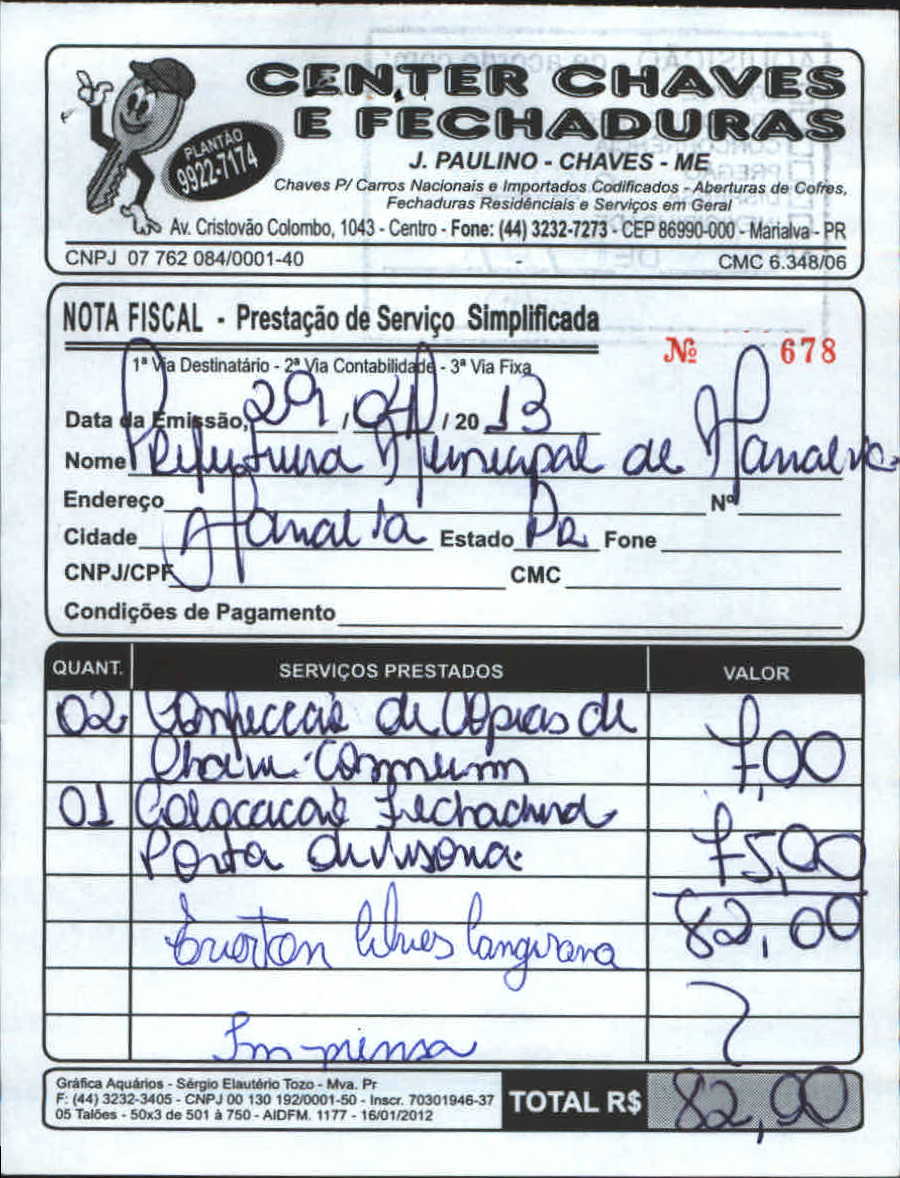 CENTER CHAVES
E FECHADURAS
PLANTÃO
9922-7174
J. PAULINO - CHAVES - ME
Chaves P/ Carros Nacionais e Importados Codificados - Aberturas de Cofres,
Fechaduras Residênciais e Serviços em Geral
Av. Cristovão Colombo, 1043 - Centro - Fone: (44) 3232-7273 - CEP 86990-000 - Marialva - PR
CNPJ 07 762 084/0001-40 CMC 6.348/06
NOTA FISCAL - Prestação de Serviço Simplificada
1ª Via Destinatário - 2ª Via Contabilidade - 3ª Via Fixa
Nº 678
Data da Emissão, 29 / 04 / 20 13
Nome Prefeitura Municipal de Marialva
Endereço Nº
Cidade Marialva Estado PR Fone
CNPJ/CPF CMC
Condições de Pagamento
QUANT. SERVIÇOS PRESTADOS VALOR
02 Confeccais de Copias de
Chave Commum 7,00
01 Colocacais Fechadura
Porta divisoria. 75,00
82,00
Everton Alves
Imprensa
Gráfica Aquários - Sérgio Elautério Tozo - Mva. Pr
F: (44) 3232-3405 - CNPJ 00 130 192/0001-50 - Inscr. 70301946-37
05 Talões - 50x3 de 501 à 750 - AIDFM. 1177 - 16/01/2012
TOTAL R$ 82,00